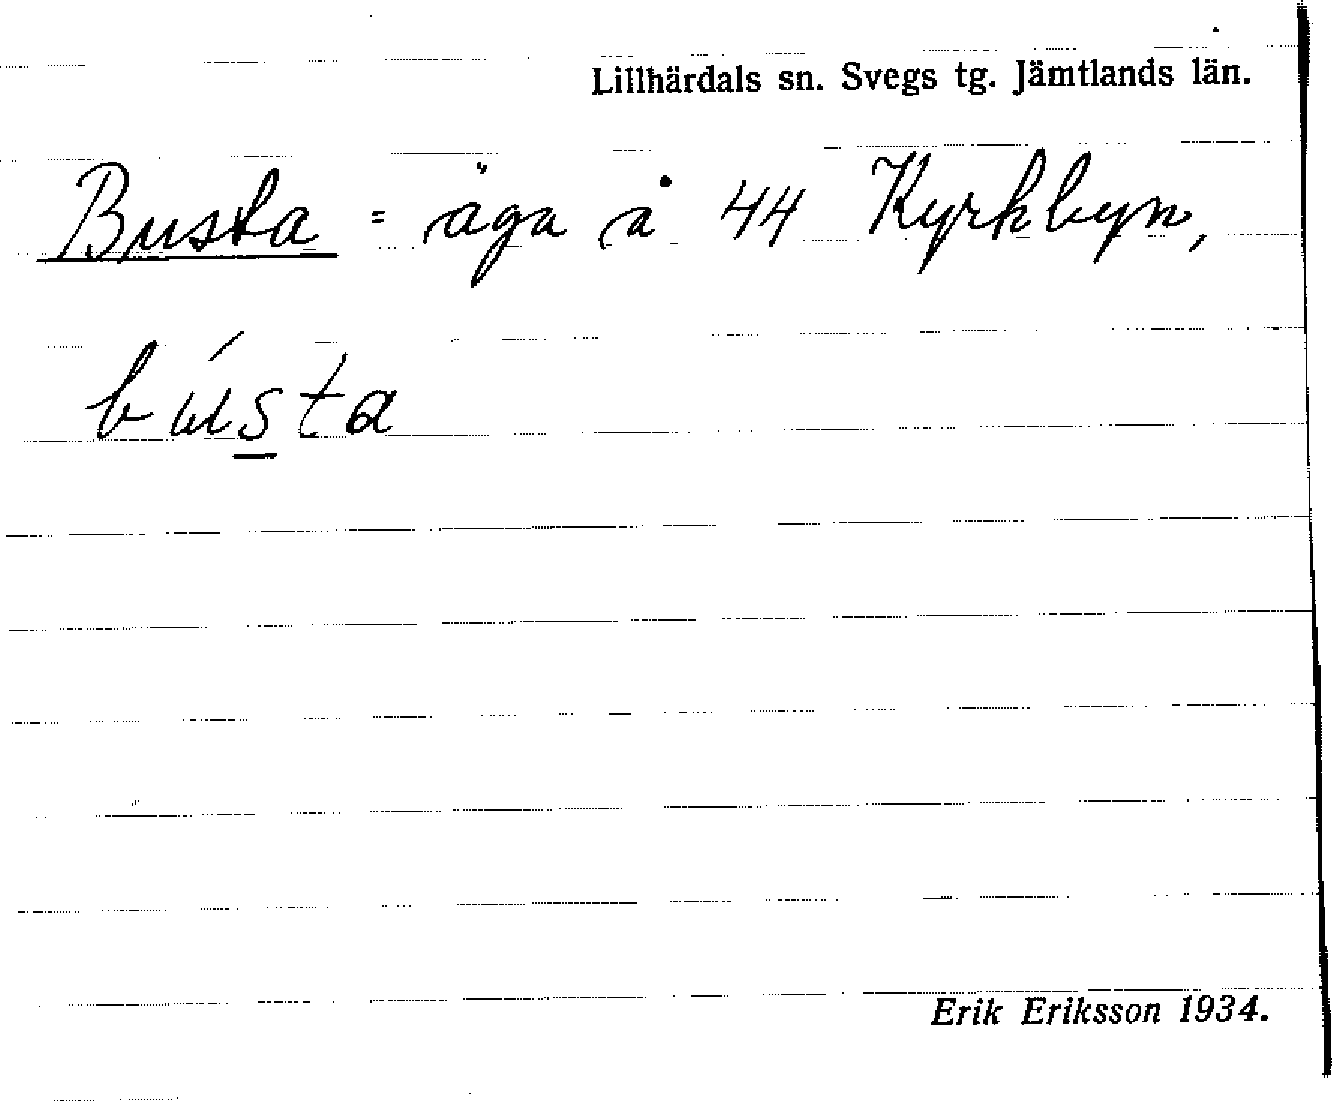 Lillhärdals sn. Svegs tg. Jämtlands län.
Busta = äga å 44 Kyrkbyn,
bústa
Erik Eriksson 1934.